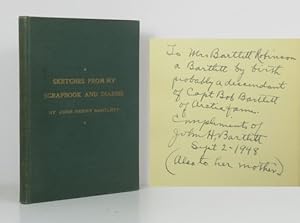 SKETCHES FROM MY
SCRAPBOOK AND DIARIES
BY JOHN HENRY BARTLETT
To Mrs Bartlett Robinson
a Bartlett by birth
probably a descendant
of Capt Bob Bartlett
of Arctic fame.
Compliments of
John H. Bartlett
Sept 2-1948
(Also to her mother)